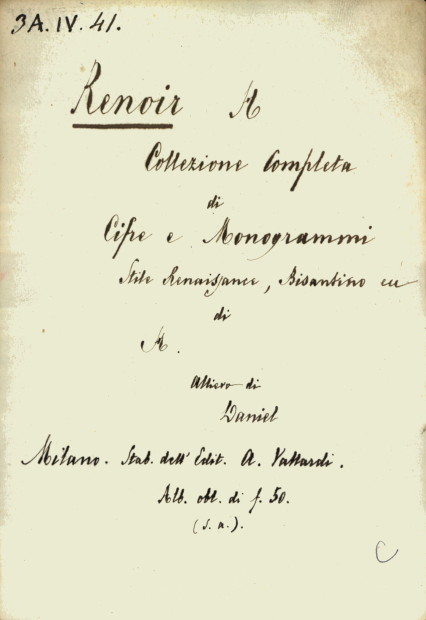 3A. IV. 41.
Renoir A
Collezione Completa
di
Cifre e Monogrammi
Stile Renaissance, Bisantino ecc
di
A.
Allievo di
Daniel
Milano. Stab. dell' Edit. A. Vallardi.
Alb. obl. di f. 50.
(s. a.).
C